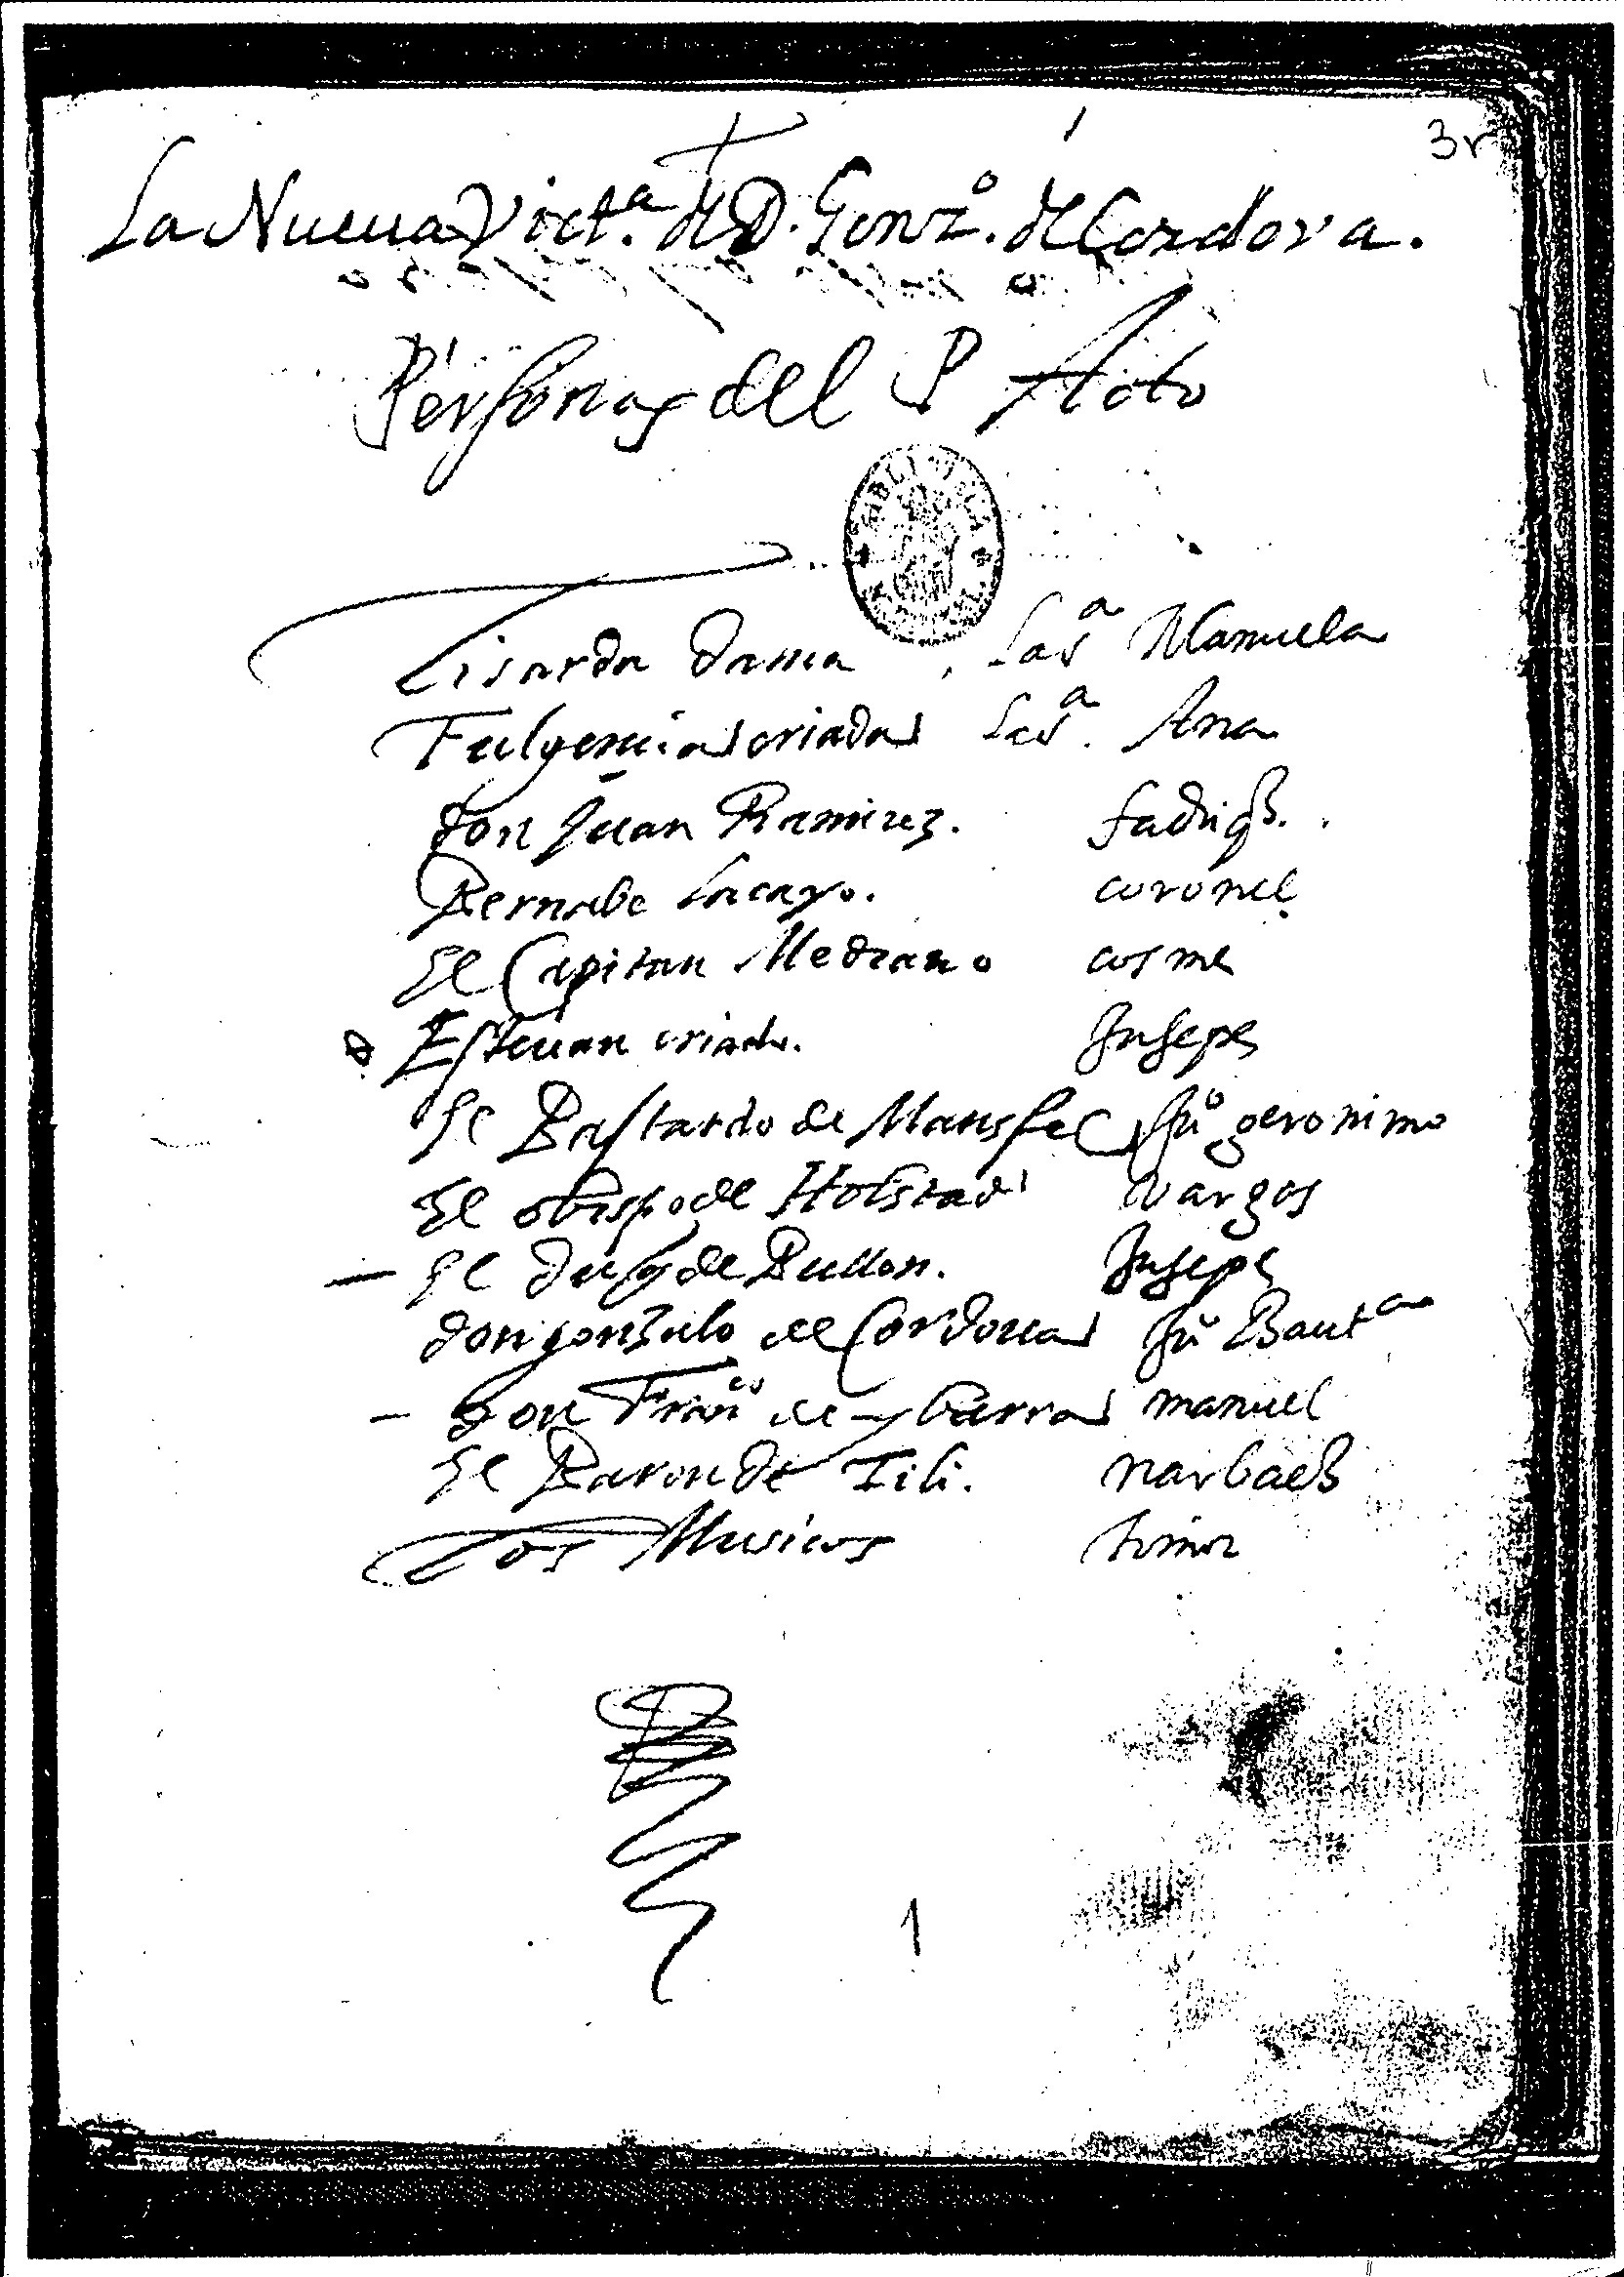 3r
La Nueua Vict.ª de D. Gonz.º de Cordova.
Personas del P Acto
Lisarda dama la s.ª Manuela
Fulgencia criada la s.ª Ana
don Juan Ramirez. fadriq.
Bernabe lacayo. coronel
El Capitan Medrano cosme
Esteuan criado. Jusepe
El Bastardo de Mansfel Ju.º geronimo
El obispo de Holstad Vargas
El duq de Bullon. Jusepe
don gonzalo de Cordoua Ju.º Baut.ª
don Fran.co de ybarra manuel
El Baron de Tili. narbaez
Los Musicos
1